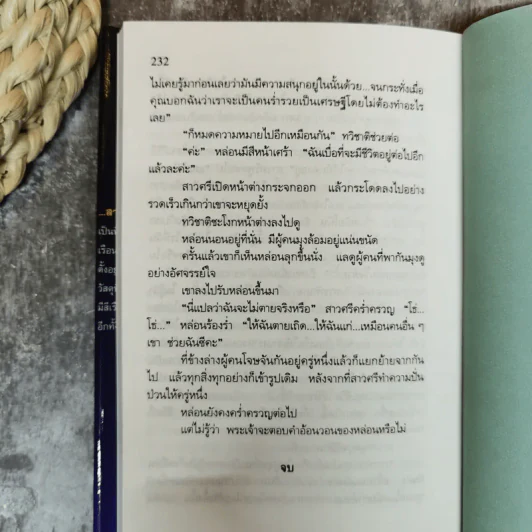 232
ไม่เคยรู้มาก่อนเลยว่ามันมีความสนุกอยู่ในนั้นด้วย...จนกระทั่งเมื่อ
คุณบอกฉันว่าเราจะเป็นคนร่ำรวยเป็นเศรษฐีโดยไม่ต้องทำอะไร
เลย"
"ก็หมดความหมายไปอีกเหมือนกัน" ทวิชาติช่วยต่อ
"ค่ะ" หล่อนมีสีหน้าเศร้า "ฉันเบื่อที่จะมีชีวิตอยู่ต่อไปอีก
แล้วละค่ะ"
สาวศรีเปิดหน้าต่างกระจกออก แล้วกระโดดลงไปอย่าง
รวดเร็วเกินกว่าเขาจะหยุดยั้ง
ทวิชาติชะโงกหน้าต่างลงไปดู
หล่อนนอนอยู่ที่นั่น มีผู้คนมุงล้อมอยู่แน่นขนัด
ครั้นแล้วเขาก็เห็นหล่อนลุกขึ้นนั่ง แลดูผู้คนที่พากันมุงดู
อย่างอัศจรรย์ใจ
เขาลงไปรับหล่อนขึ้นมา
"นี่แปลว่าฉันจะไม่ตายจริงหรือ" สาวศรีคร่ำครวญ "โธ่...
โธ่..." หล่อนร้องร่ำ "ให้ฉันตายเถิด...ให้ฉันแก่...เหมือนคนอื่น ๆ
เขา ช่วยฉันซีคะ"
ที่ข้างล่างผู้คนโจษจันกันอยู่ครู่หนึ่งแล้วก็แยกย้ายจากกัน
ไป แล้วทุกสิ่งทุกอย่างก็เข้ารูปเดิม หลังจากที่สาวศรีทำความปั่น
ป่วนให้ครู่หนึ่ง
หล่อนยังคงคร่ำครวญต่อไป
แต่ไม่รู้ว่า พระเจ้าจะตอบคำอ้อนวอนของหล่อนหรือไม่
จบ